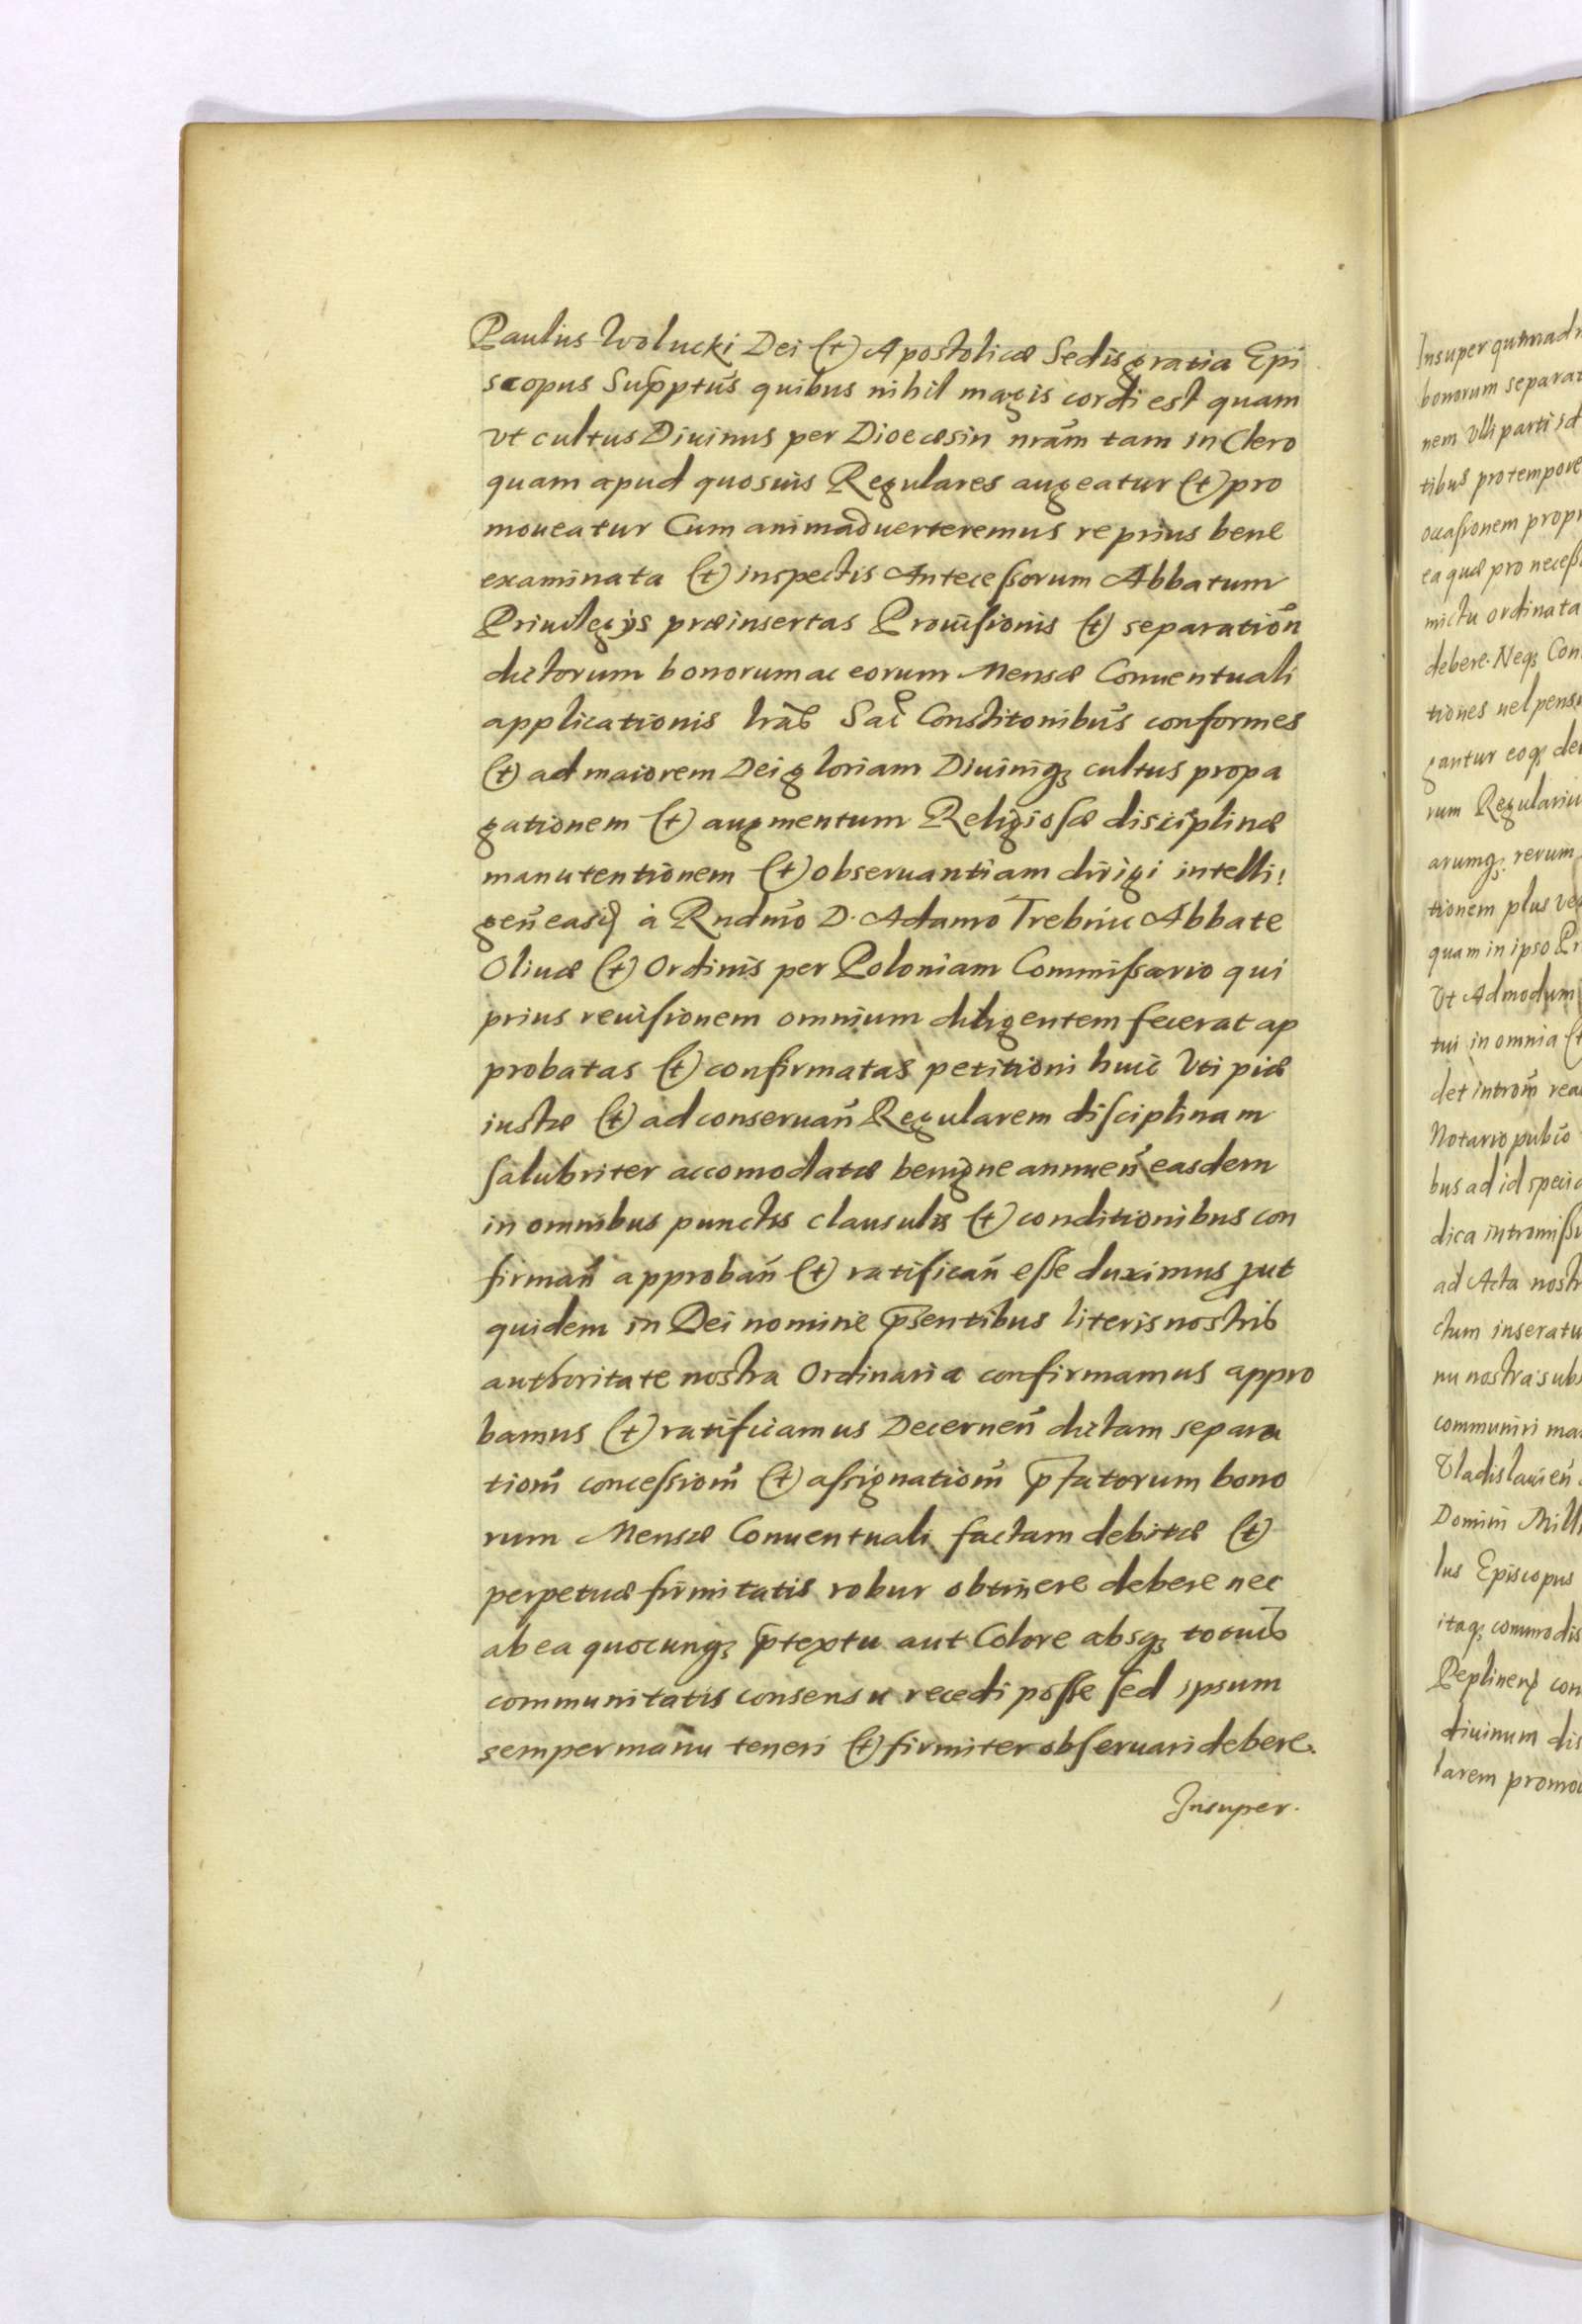 Paulus Wolucki Dei (et) Apostolicæ Sedis gratia Epi
scopus Supptūs quibus nihil magis cordi est quam
vt cultus Diuinus per Dioecæsin nrām tam in Clero
quam apud quosuis Regulares augeatur (et) pro
moueatur Cum animaduerteremus re prius bene
examinata (et) inspectis Antecessorum Abbatum
Priuilegijs præinsertas Prouisionis (et) separatioñ
dictorum bonorum ac eorum Mensæ Conuentuali
applicationis lrās Sac Constitonibus conformes
(et) ad maiorem Dei gloriam Diuiniq3 cultus propa
gationem (et) augmentum Religiosæ disciplinæ
manutentionem (et) obseruantiam dirigi intelli:
geñ easq3 à Rndmo D. Adamo Trebnic Abbate
Oliuæ (et) Ordinis per Poloniam Commissario qui
prius reuisionem omnium diligentem fecerat ap
probatas (et) confirmatas petitioni huic Vti piæ
iustæ (et) ad conseruañ Regularem disciplinam
salubriter accomodatæ benigne annueñ easdem
in omnibus punctis clausulis (et) conditionibus con
firmañ approbañ (et) ratificañ esse duximus put
quidem in Dei nomine p̄sentibus literis nostris
authoritate nostra Ordinaria confirmamus appro
bamus (et) ratificamus Decerneñ dictam separa
tiom̄ concessiom̄ (et) assignatiom̄ p̄fatorum bono
rum Mensæ Conuentuali factam debitæ (et)
perpetuæ firmitatis robur obtinere debere nec
ab ea quocunq3 p̄textu aut Colore absq3 totius
communitatis consensu recedi posse sed ipsum
semper manu teneri (et) firmiter obseruari debere.
Insuper.
Insuper
bonorum separa
nem Vlli parti id
tibus pro tempore
occasionem propr
ea quæ pro necess
mictu ordinata
debere. Neq3 Con
tiones uel pens
gantur eoq3 de
rum Regulariu
arumq3 rerum
tionem plus ve
quam in ipso Pr
Vt Admodum
tui in omnia (et
det introm̄ rea
Notario pubco
bus ad id specia
dica intromiss
ad Acta nostr
ctum inseratu
nu nostra subs
communiri ma
Vladislauieñ
Domini Mill
lus Episcopus
itaq3 commodis
Peplineñ con
diuinum dis
larem promo